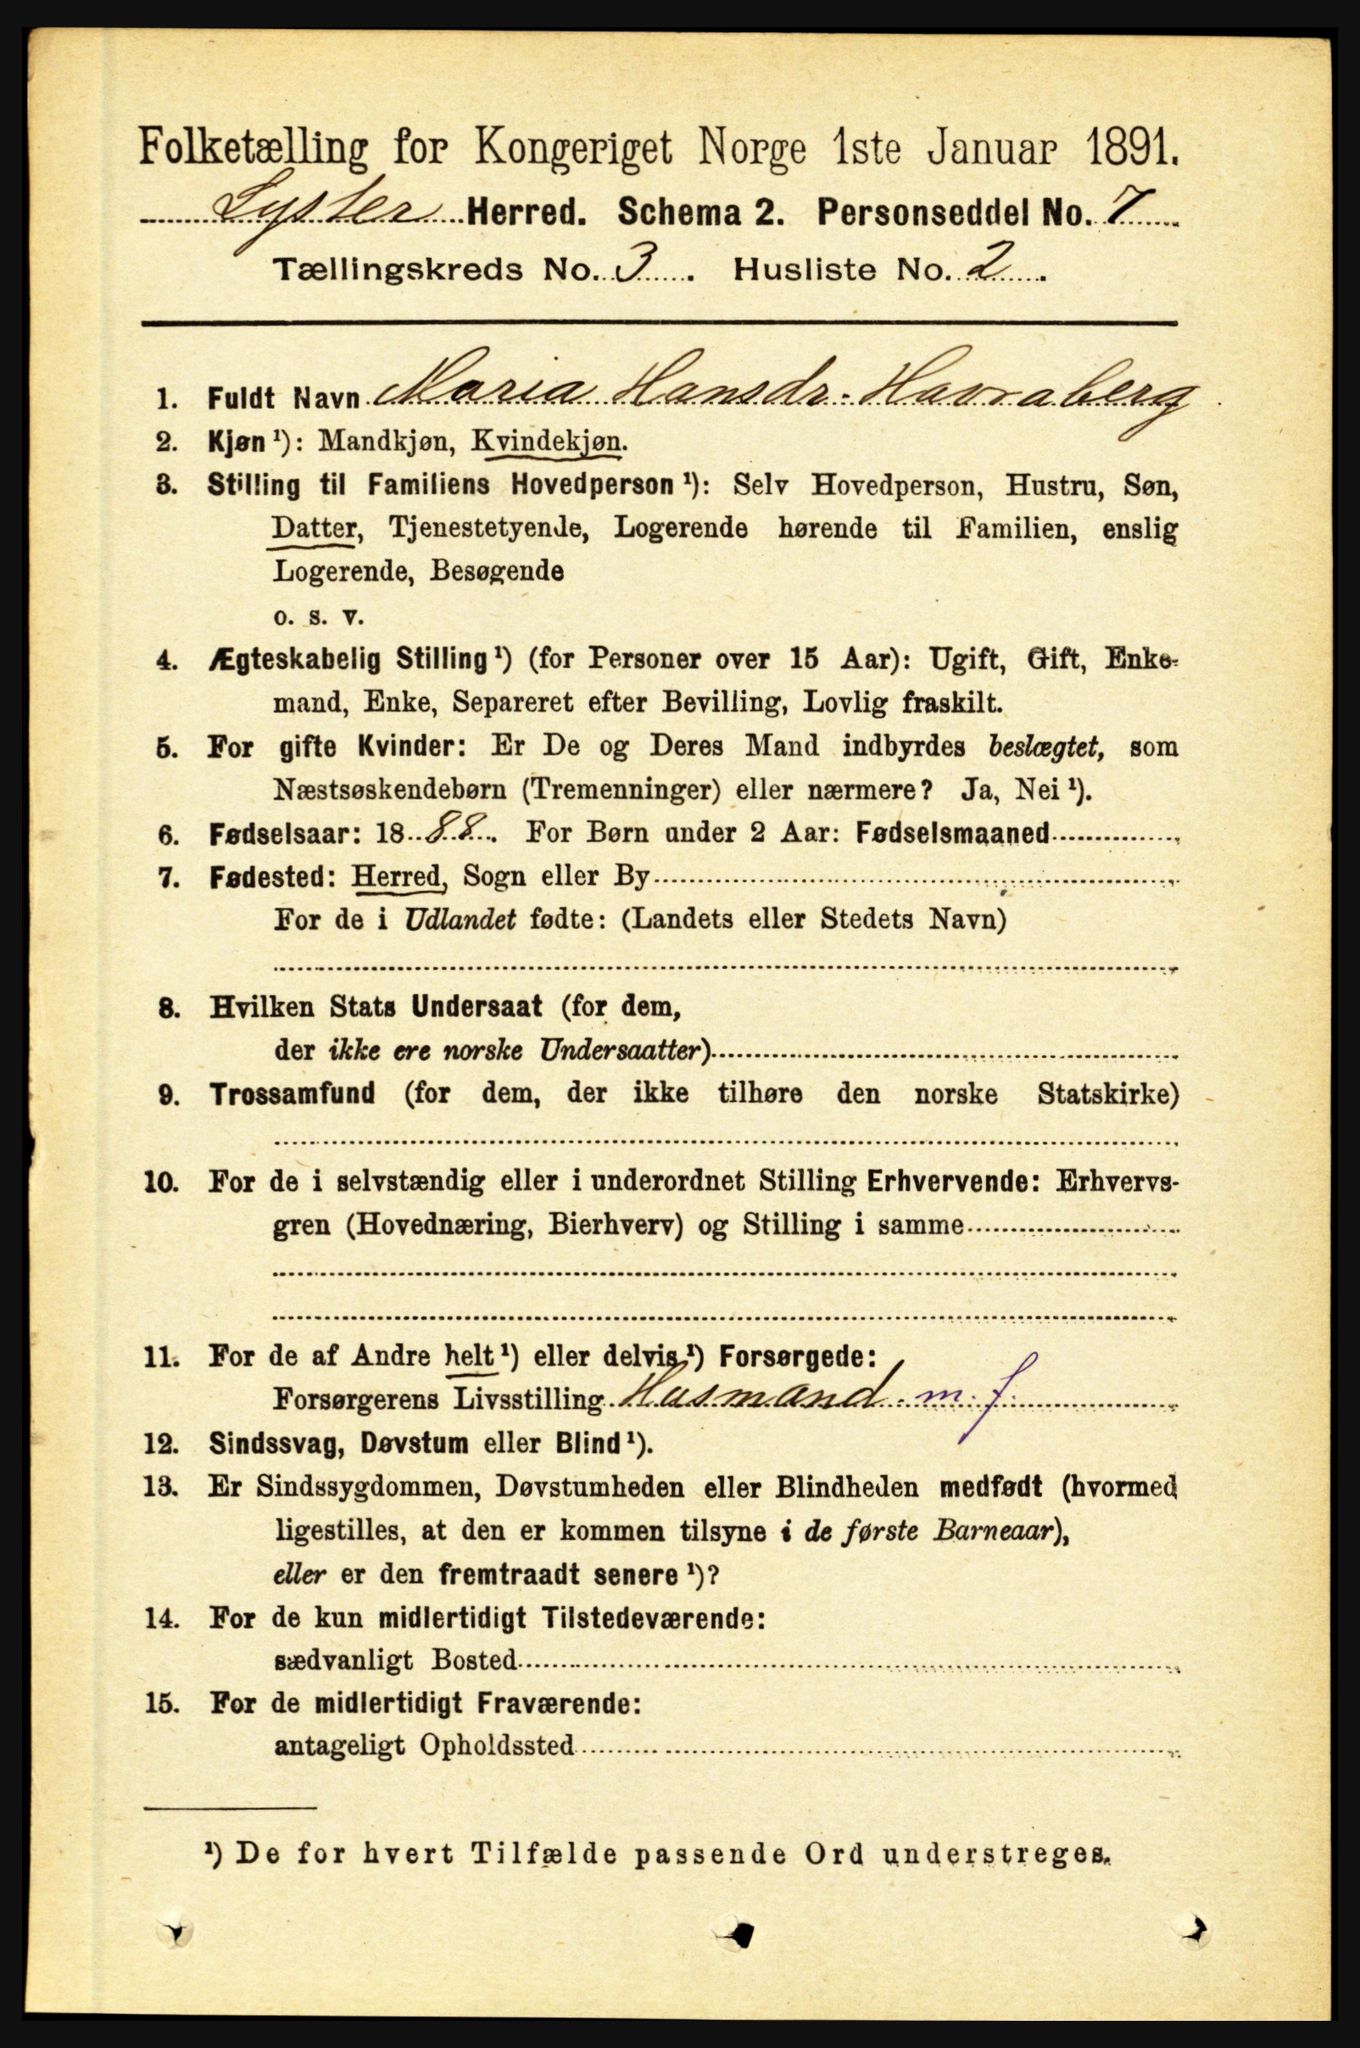 Folketælling for Kongeriget Norge 1ste Januar 1891.
Lyster Herred. Schema 2. Personseddel No. 7
Tællingskreds No. 3. Husliste No. 2.
1. Fuldt Navn Maria Hansdr. Havraberg
2. Kjøn ¹): Mandkjøn, Kvindekjøn.
3. Stilling til Familiens Hovedperson ¹): Selv Hovedperson, Hustru, Søn,
Datter, Tjenestetyende, Logerende hørende til Familien, enslig
Logerende, Besøgende
o. s. v.
4. Ægteskabelig Stilling ¹) (for Personer over 15 Aar): Ugift, Gift, Enke-
mand, Enke, Separeret efter Bevilling, Lovlig fraskilt.
5. For gifte Kvinder: Er De og Deres Mand indbyrdes beslægtet, som
Næstsøskendebørn (Tremenninger) eller nærmere? Ja, Nei ¹).
6. Fødselsaar: 1888. For Børn under 2 Aar: Fødselsmaaned
7. Fødested: Herred, Sogn eller By
For de i Udlandet fødte: (Landets eller Stedets Navn)
8. Hvilken Stats Undersaat (for dem,
der ikke ere norske Undersaatter)
9. Trossamfund (for dem, der ikke tilhøre den norske Statskirke)
10. For de i selvstændig eller i underordnet Stilling Erhvervende: Erhvervs-
gren (Hovednæring, Bierhverv) og Stilling i samme
11. For de af Andre helt ¹) eller delvis ¹) Forsørgede:
Forsørgerens Livsstilling Husmand. m. f.
12. Sindssvag, Døvstum eller Blind ¹).
13. Er Sindssygdommen, Døvstumheden eller Blindheden medfødt (hvormed
ligestilles, at den er kommen tilsyne i de første Barneaar),
eller er den fremtraadt senere ¹)?
14. For de kun midlertidigt Tilstedeværende:
sædvanligt Bosted
15. For de midlertidigt Fraværende:
antageligt Opholdssted
¹) De for hvert Tilfælde passende Ord understreges.